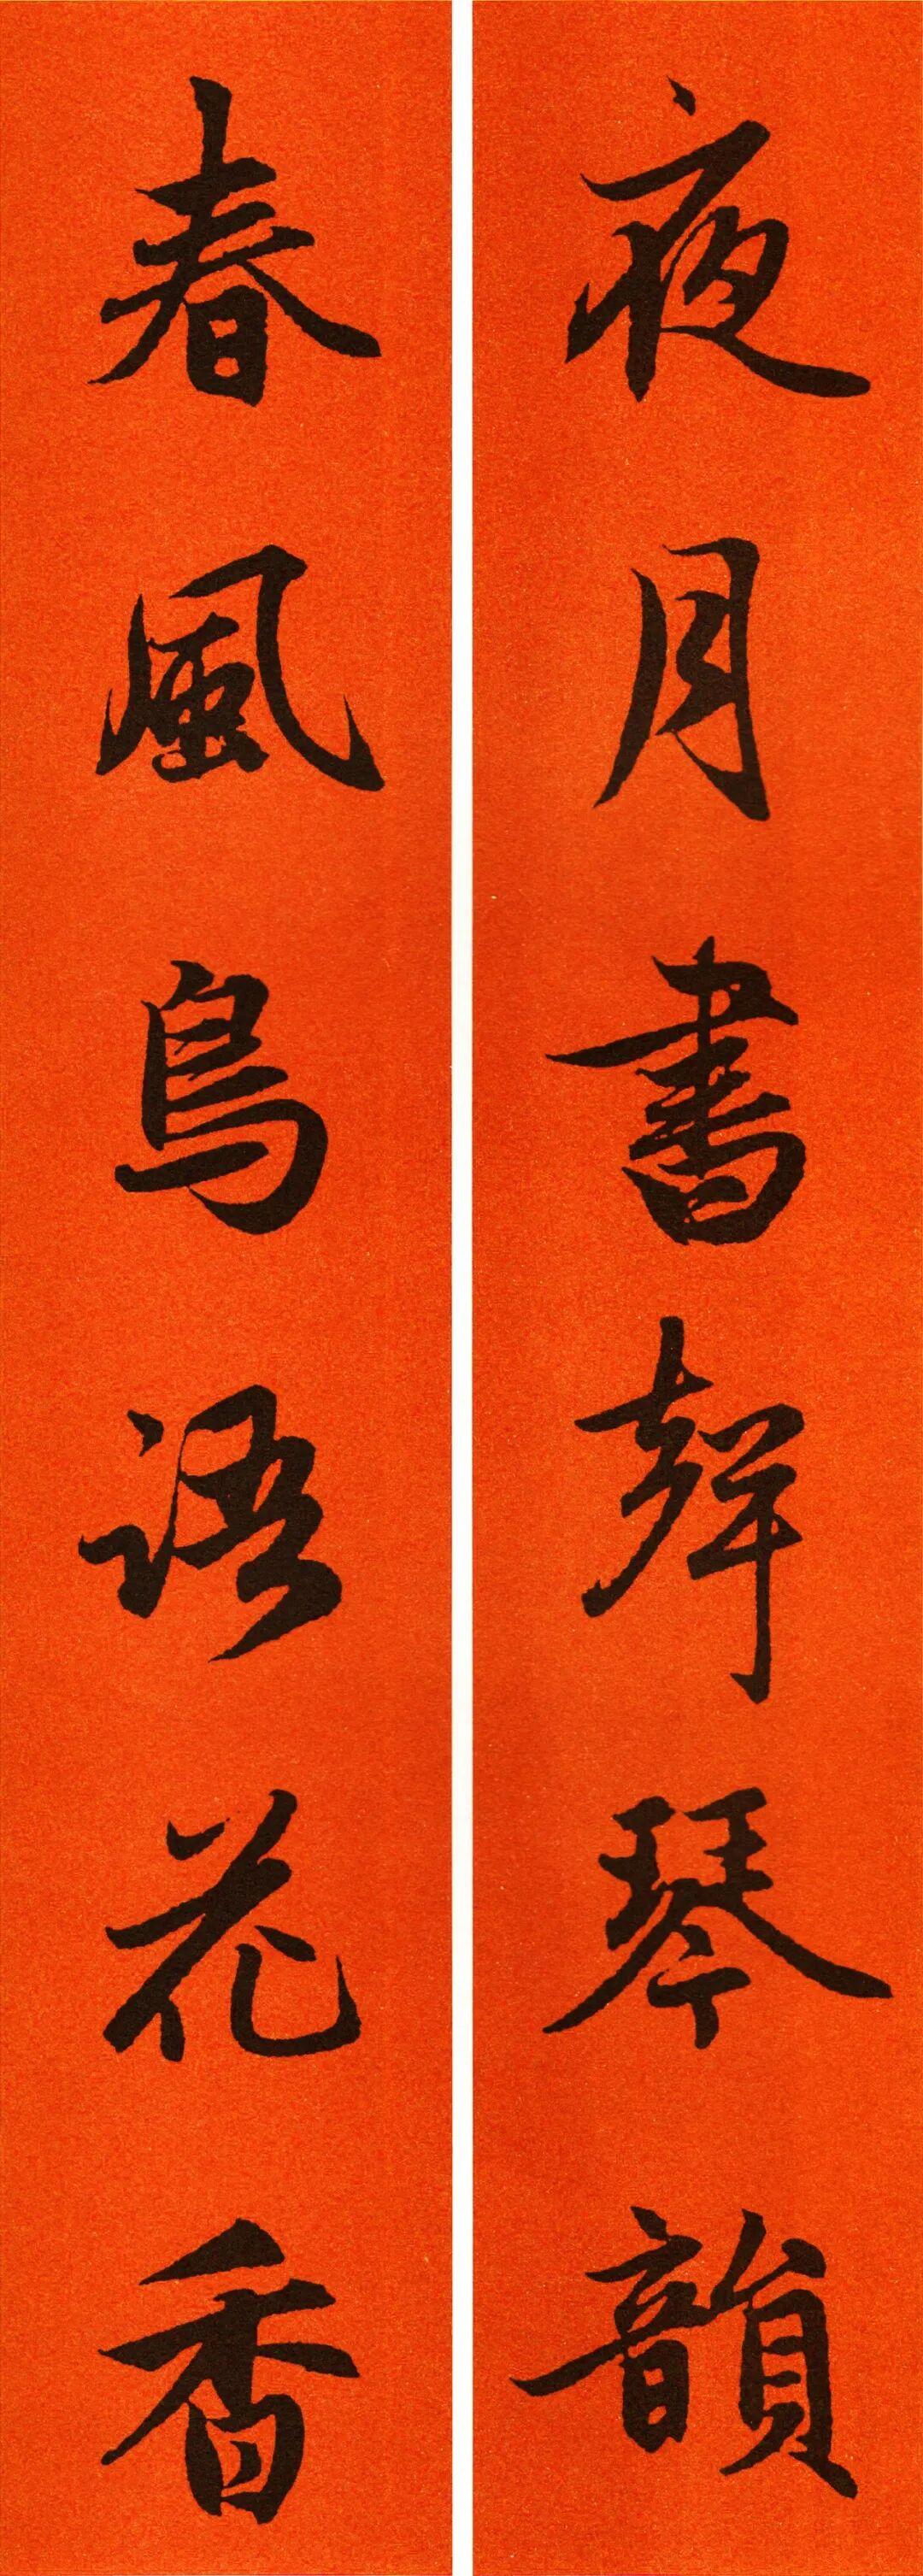 夜月書聲琴韻
春風鳥語花香